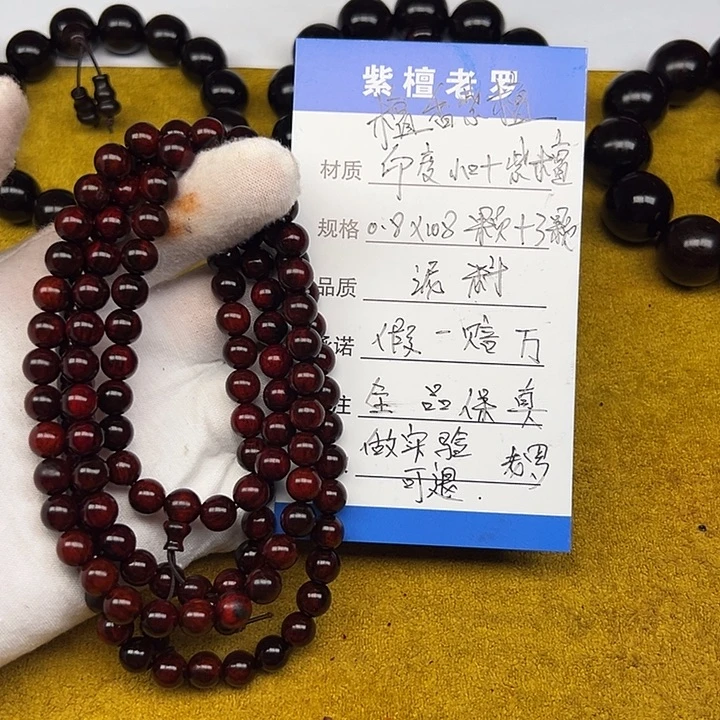 紫檀老罗
檀香紫檀
材质 印度小叶紫檀
规格 0.8×108颗+3颗
品质 泥料
承诺 假一赔万
注 全品保真
做实验 老罗
可退.